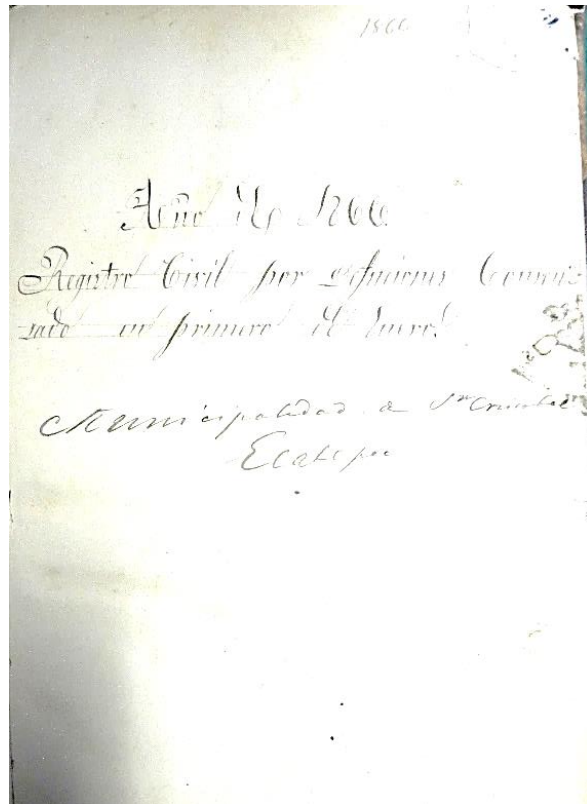 1866
Año de 1866.
Registro Civil por defunciones Comen-
sado en primero de Enero.
Municipalidad de Sn Cristobal
Ecatepec